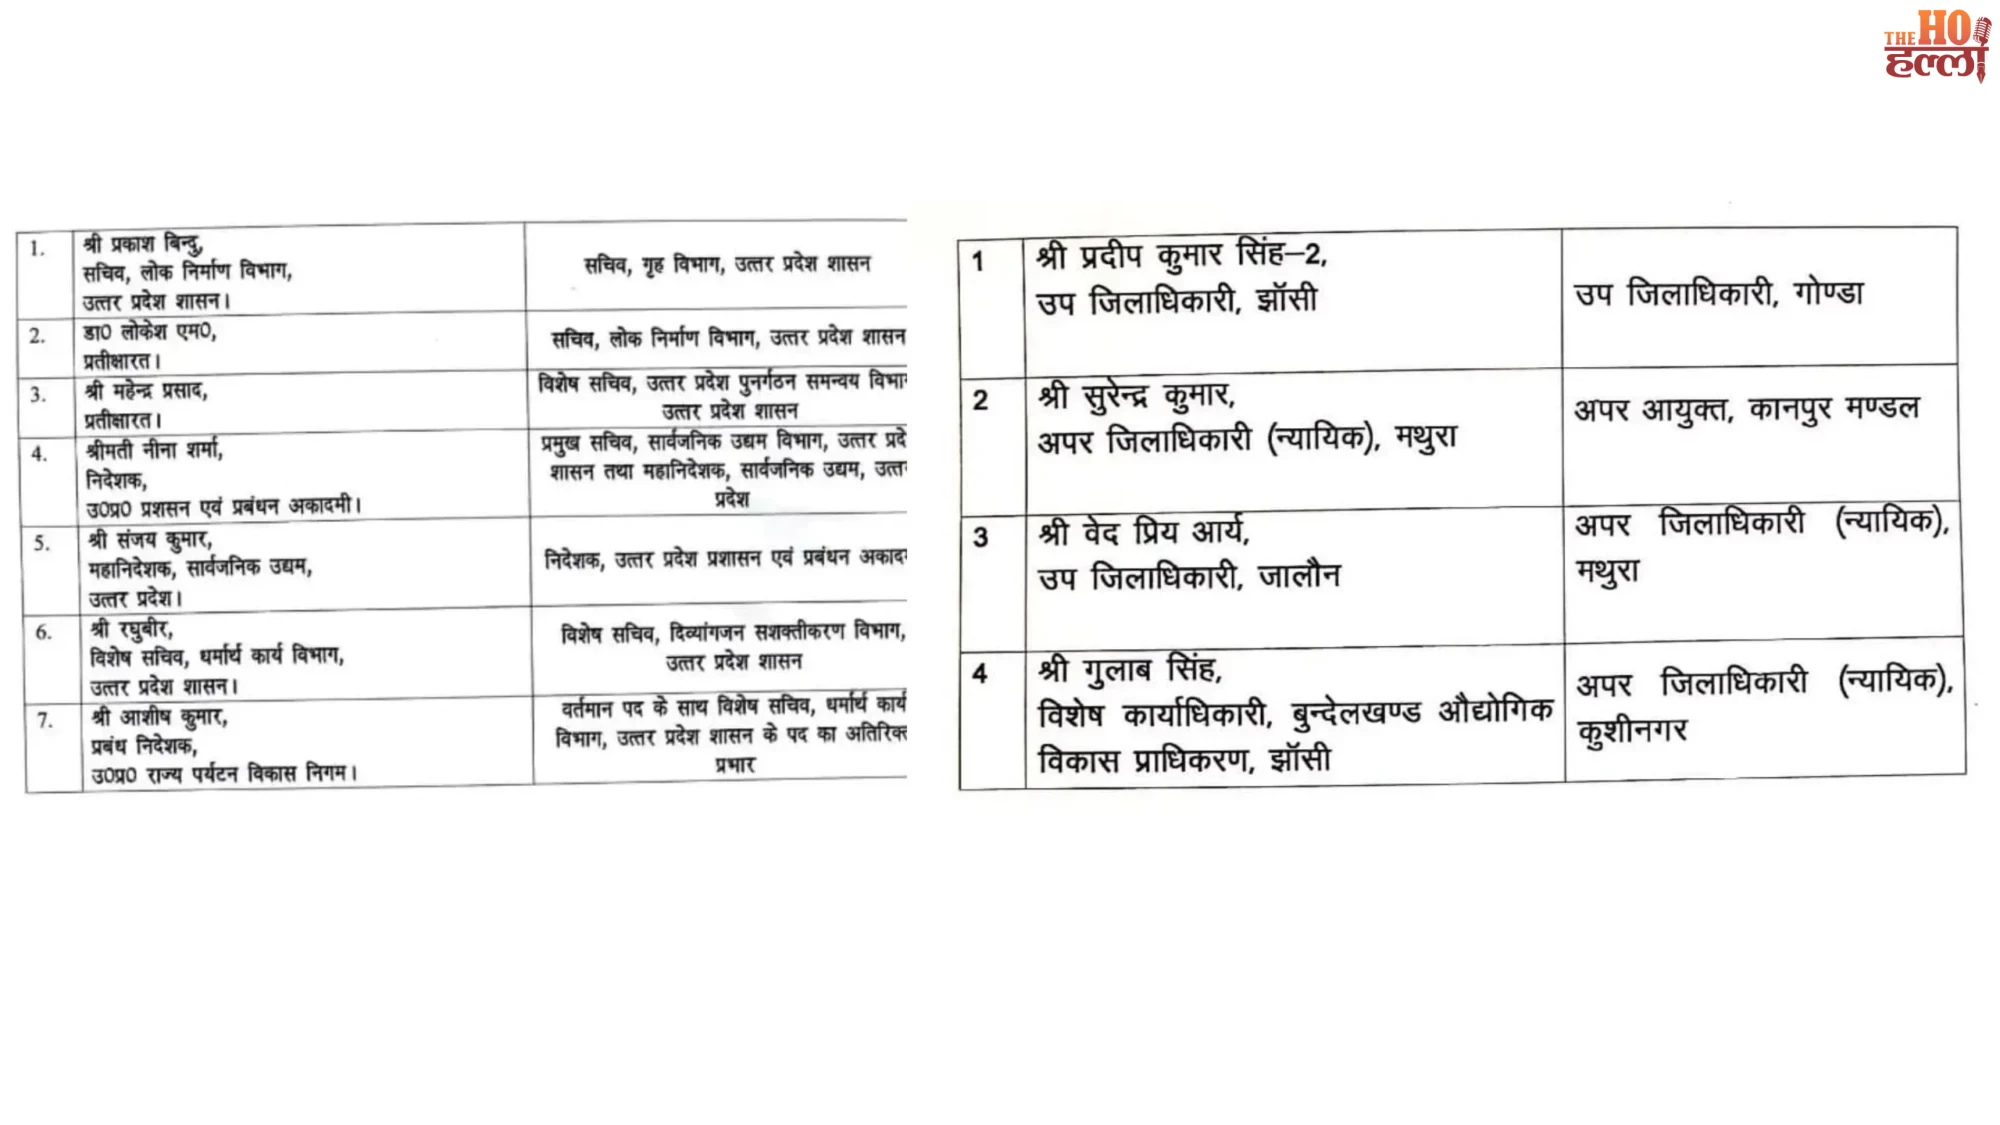 THE HO
हल्ला
1.
श्री प्रकाश बिन्दु,
सचिव, लोक निर्माण विभाग,
उत्तर प्रदेश शासन।
सचिव, गृह विभाग, उत्तर प्रदेश शासन
2.
डा0 लोकेश एम0,
प्रतीक्षारत।
सचिव, लोक निर्माण विभाग, उत्तर प्रदेश शासन
3.
श्री महेन्द्र प्रसाद,
प्रतीक्षारत।
विशेष सचिव, उत्तर प्रदेश पुनर्गठन समन्वय विभा
उत्तर प्रदेश शासन
4.
श्रीमती नीना शर्मा,
निदेशक,
उ0प्र0 प्रशसन एवं प्रबंधन अकादमी।
प्रमुख सचिव, सार्वजनिक उद्यम विभाग, उत्तर प्रदे
शासन तथा महानिदेशक, सार्वजनिक उद्यम, उत्त
प्रदेश
5.
श्री संजय कुमार,
महानिदेशक, सार्वजनिक उद्यम,
उत्तर प्रदेश।
निदेशक, उत्तर प्रदेश प्रशासन एवं प्रबंधन अकाद
6.
श्री रघुबीर,
विशेष सचिव, धर्मार्थ कार्य विभाग,
उत्तर प्रदेश शासन।
विशेष सचिव, दिव्यांगजन सशक्तीकरण विभाग,
उत्तर प्रदेश शासन
7.
श्री आशीष कुमार,
प्रबंध निदेशक,
उ0प्र0 राज्य पर्यटन विकास निगम।
वर्तमान पद के साथ विशेष सचिव, धर्मार्थ कार्य
विभाग, उत्तर प्रदेश शासन के पद का अतिरिक्त
प्रभार
1
श्री प्रदीप कुमार सिंह–2,
उप जिलाधिकारी, झॉसी
उप जिलाधिकारी, गोण्डा
2
श्री सुरेन्द्र कुमार,
अपर जिलाधिकारी (न्यायिक), मथुरा
अपर आयुक्त, कानपुर मण्डल
3
श्री वेद प्रिय आर्य,
उप जिलाधिकारी, जालौन
अपर जिलाधिकारी (न्यायिक),
मथुरा
4
श्री गुलाब सिंह,
विशेष कार्याधिकारी, बुन्देलखण्ड औद्योगिक
विकास प्राधिकरण, झॉसी
अपर जिलाधिकारी (न्यायिक),
कुशीनगर